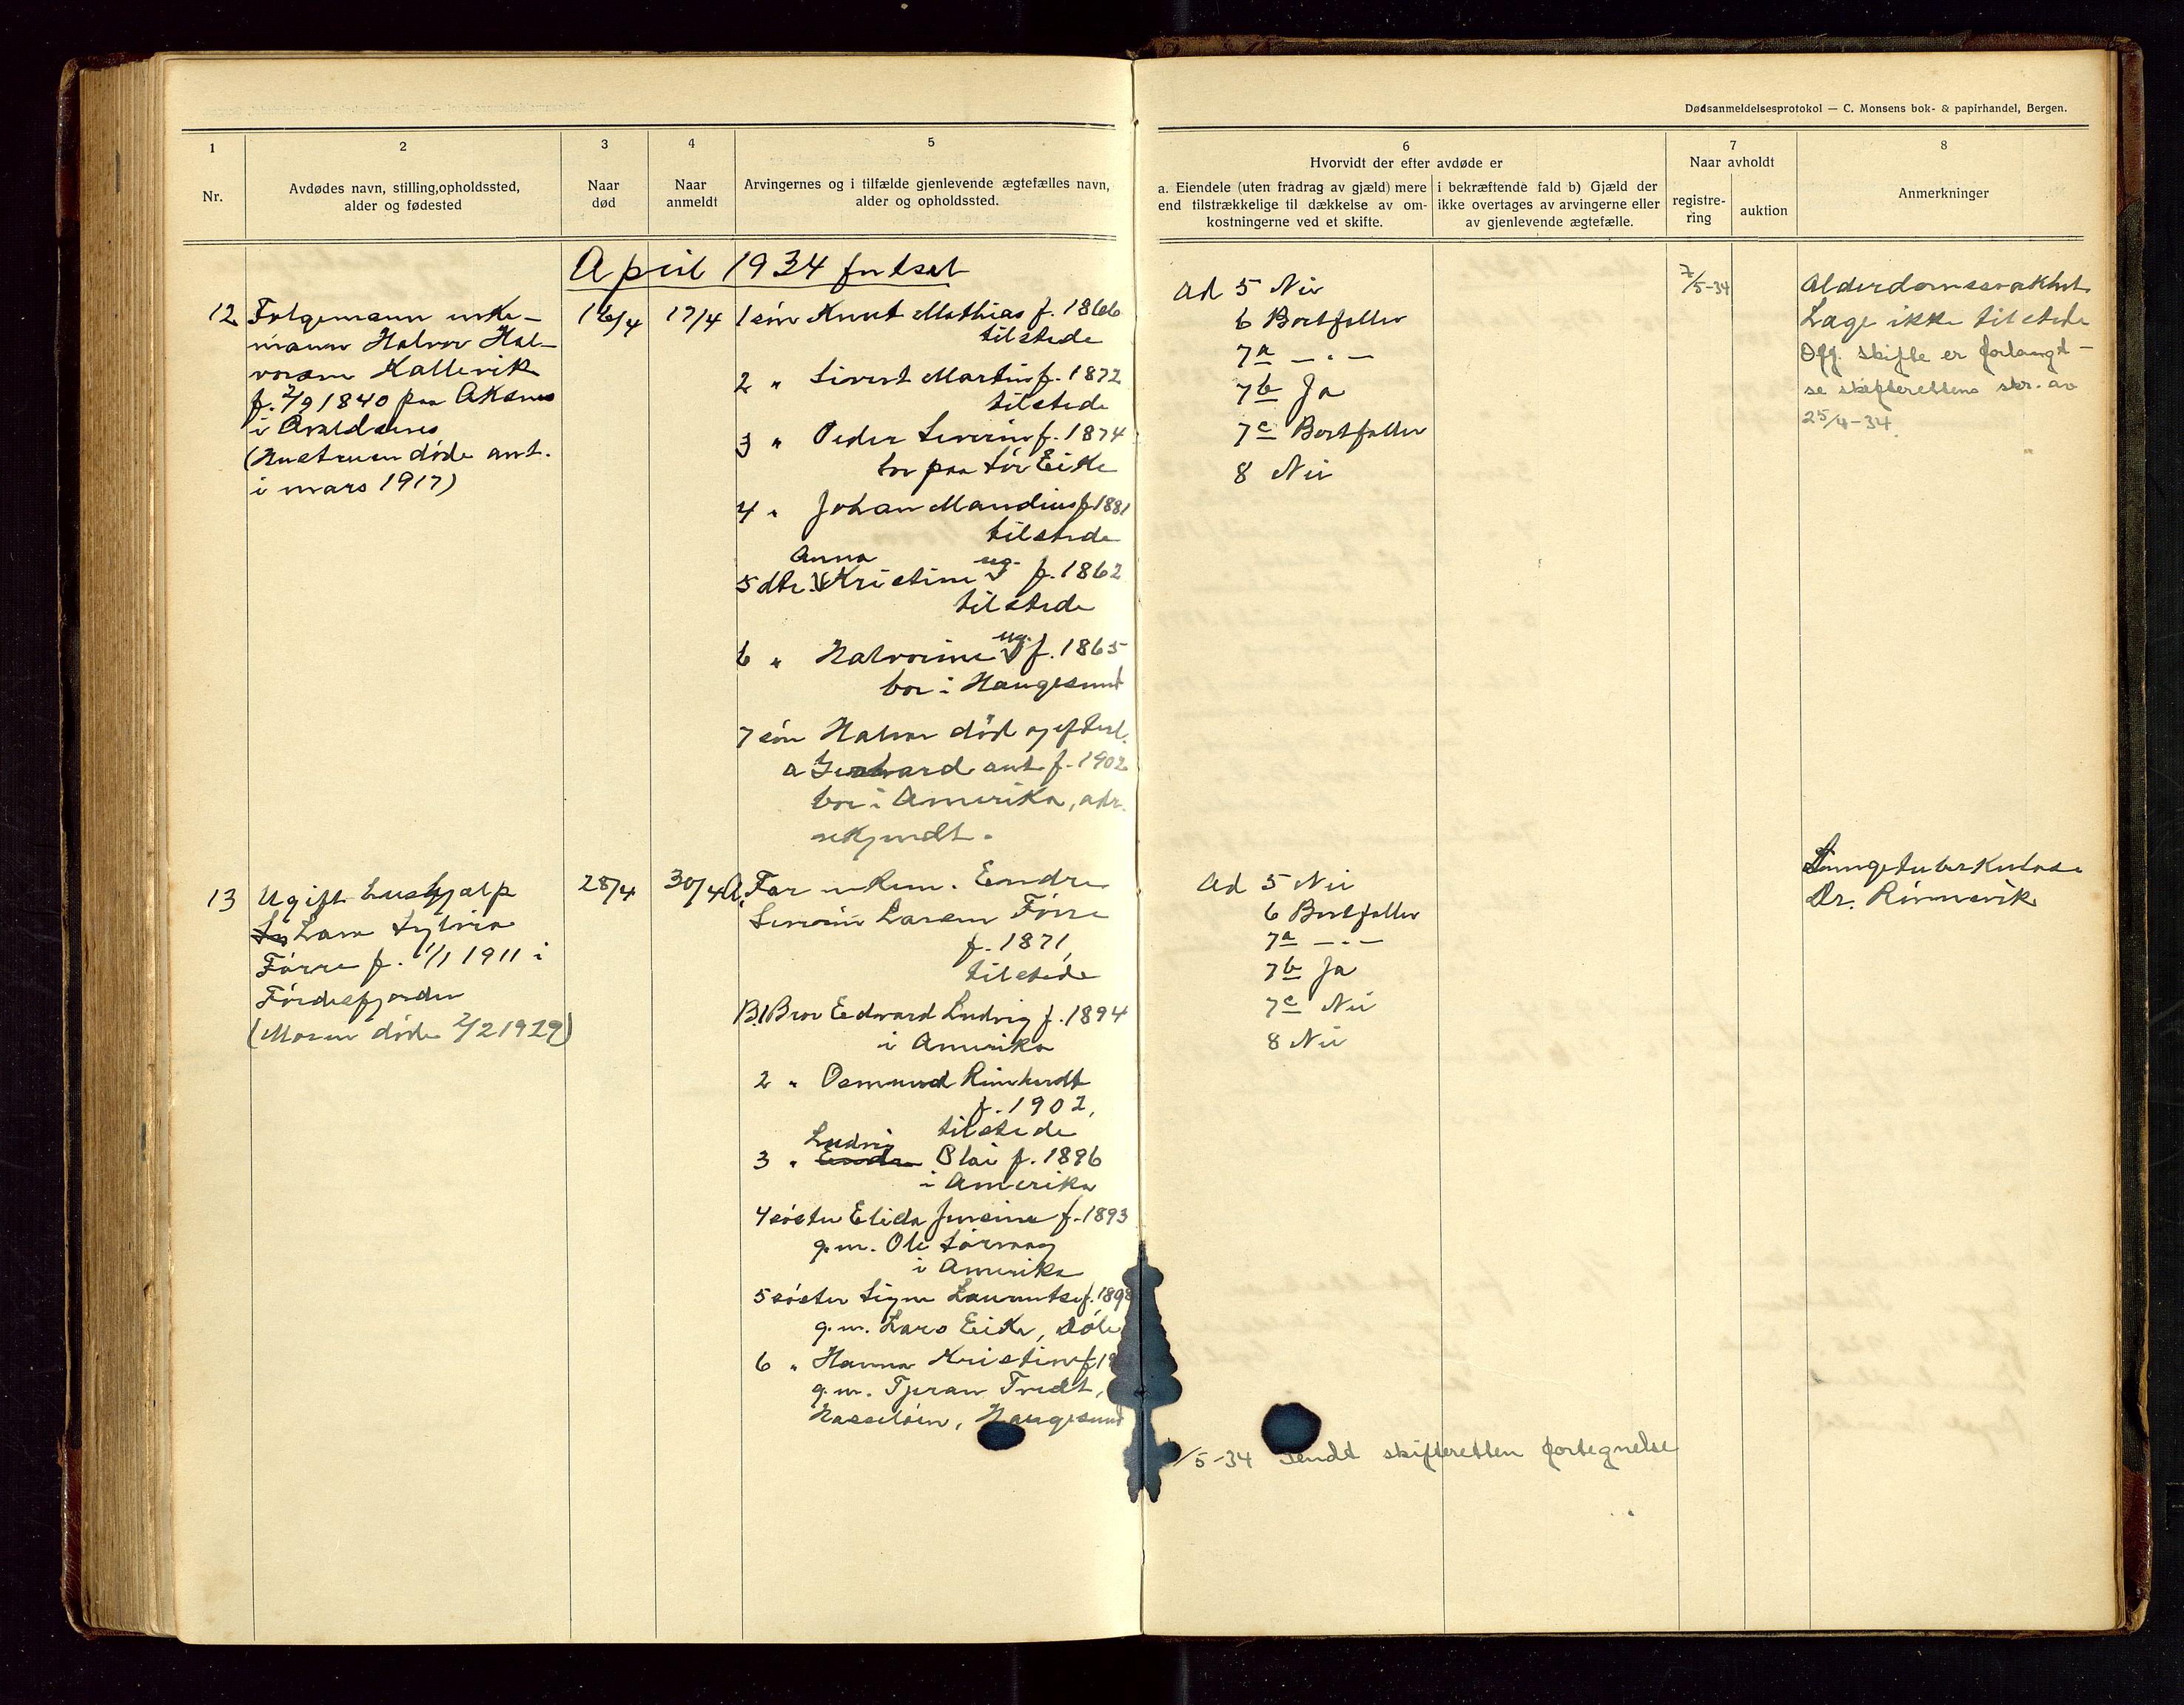 Dødsanmeldelsesprotokol — C. Monsens bok- & papirhandel, Bergen.
1
2
3
4
5
6
7
8
Nr.
Avdødes navn, stilling,opholdssted,
alder og fødested
Naar
død
Naar
anmeldt
Arvingernes og i tilfælde gjenlevende ægtefælles navn,
alder og opholdssted.
Hvorvidt der efter avdøde er
a. Eiendele (uten fradrag av gjæld) mere
end tilstrækkelige til dækkelse av om-
kostningerne ved et skifte.
i bekræftende fald b) Gjæld der
ikke overtages av arvingerne eller
av gjenlevende ægtefælle.
Naar avholdt
registre-
ring
auktion
Anmerkninger
April 1934 fortsat
12
Følgemann enke-
mann Halvor Hal-
vorsen Kallevik
f. 2/9 1840 paa Aksnes
i Avaldsnes
(Hustruen døde ant.
i mars 1917)
16/4
17/4
1 søn Knut Mathias f. 1866
tilstede
2 " Sivert Martin f. 1872
tilstede
3 " Peder Severin f. 1874
bor paa Sør Eike
4 " Johan Mandius f 1881
tilstede
Anna ug.
5 dtr. Kristine f. 1862
tilstede
ug.
6 " Halvorine f. 1865
bor i Haugesund
7 søn Halvor død og efterl.
a Gerhard ant f. 1902
bor i Amerika, adr.
ukjendt.
ad 5 Nei
6 Bortfaller
7a — " —
7b Ja
7c Bortfaller
8 Nei
7/5-34
Alderdomssvakhet
Læge ikke tilstede
Off. skifte er forlangt -
se skifterettens skr. av
25/4-34
13
Ugift hushjælp
Lara Sylvia
Førre f. 1/1 1911 i
Førdesfjorden
(Moren døde 2/2 1929)
28/4
30/4
A. Far enkem. Endre
Severin Larsen Førre
f. 1871,
tilstede
B.1 Bror Edvard Ludvig f. 1894
i Amerika
2 " Osmund Reinhardt
f. 1902,
tilstede
Ludvig
3 " Endre Olai f. 1896
i Amerika
4 søster Elida Jensine f. 1893
g.m. Ole Sørvaag
i Amerika
5 søster Signe Laurentse f. 1898
g.m. Lars Eike,
6 " Hanna Kristine f 19
g.m. Tjeran Tvedt,
Hasseløen, Haugesund
ad 5 Nei
6 Bortfaller
7a — " —
7b Ja
7c Nei
8 Nei
Lungetuberkulose
Dr. Rinnevik
/5-34 Sendt skifteretten fortegnelse